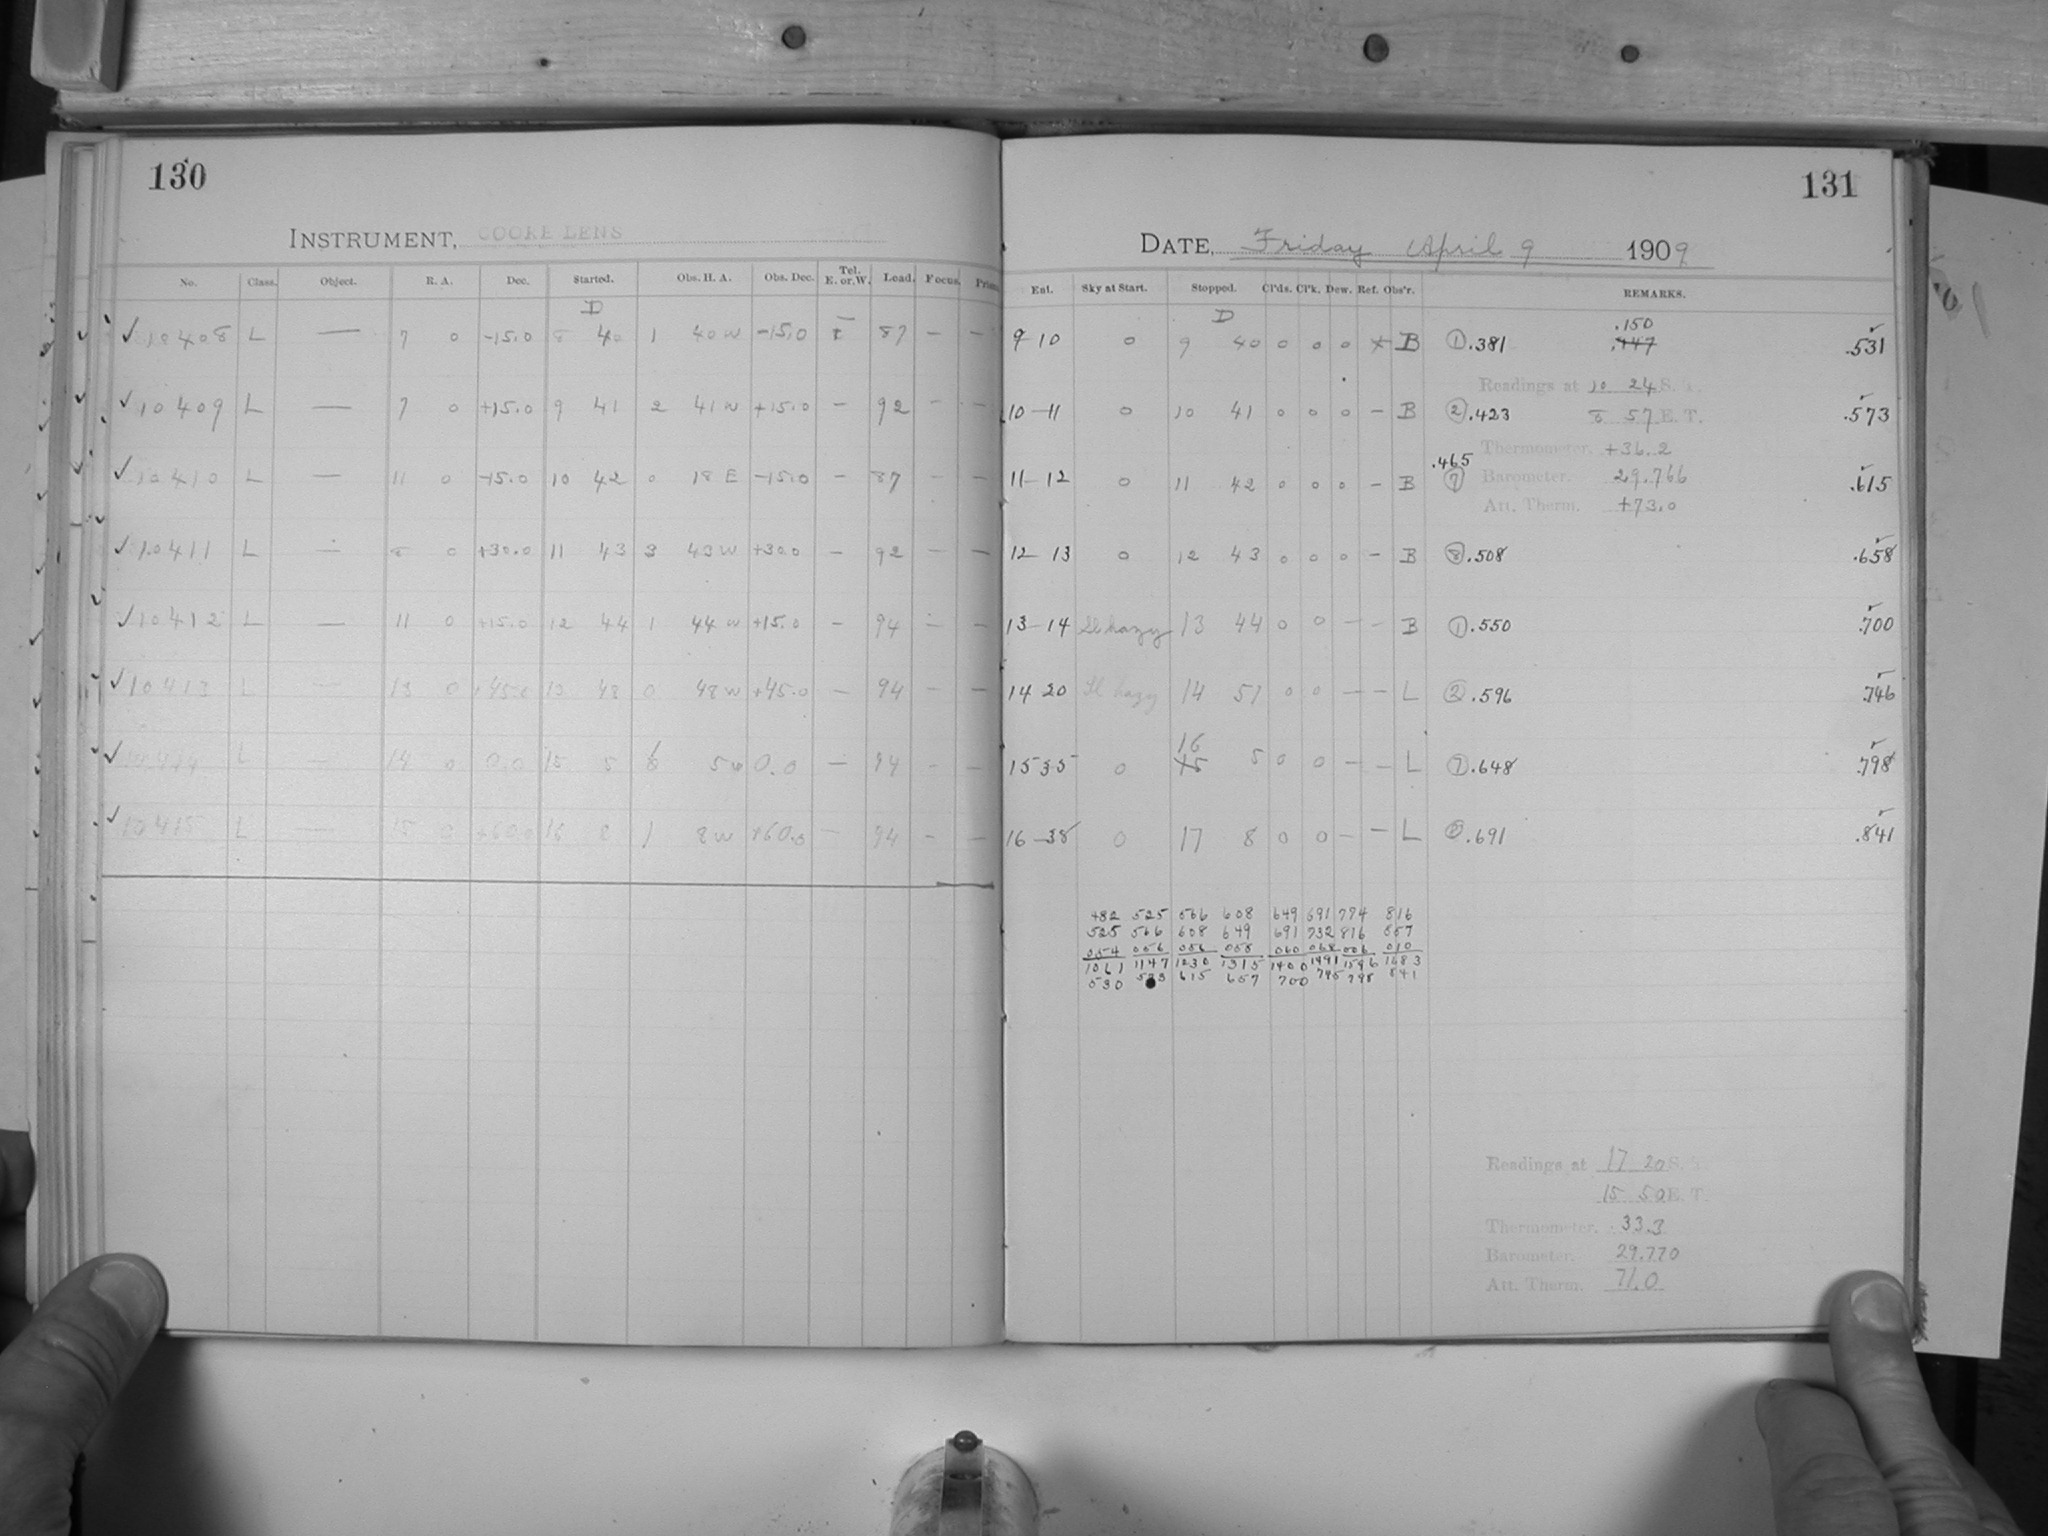 130
INSTRUMENT, COOKE LENS
No. Class. Object. R. A. Dec. Started. Obs. H. A. Obs. Dec. Tel. E. or W. Lead. Focus.
D
✓ 10408 L — 7 0 -15.0 8 40 1 40 W -15.0 87 — —
✓ 10409 L — 7 0 +15.0 9 41 2 41 W +15.0 — 92 - -
✓ 10410 L — 11 0 -15.0 10 42 0 18 E -15.0 — 87 — —
✓ 10411 L — 8 0 +30.0 11 43 3 43 W +30.0 — 92 — —
✓ 10412 L — 11 0 +15.0 12 44 1 44 W +15.0 — 94 — —
✓ 10413 L — 13 0 +45.0 13 48 0 48 W +45.0 — 94 — —
✓ 10414 L — 14 0 0.0 15 5 1 5 W 0.0 — 94 - —
✓ 10415 L — 15 0 +60.0 16 8 1 8 W +60.0 — 94 - —
131
DATE, Friday April 9 1909
Ent. Sky at Start. Stopped. Cl'ds. Cl'k. Dew. Ref. Obs'r. REMARKS.
D
.150
9-10 0 9 40 0 0 0 B ① .381 .447 .531
Readings at 10 24 S. T.
10-11 0 10 41 0 0 0 — B ② .423 8 57 E. T. .573
Thermometer. +36.2
.465
11-12 0 11 42 0 0 0 — B ⑦ Barometer. 29.766 .615
Att. Therm. +73.0
12-13 0 12 43 0 0 0 — B ⑧ .508 .658
13-14 Sl hazy 13 44 0 0 — — B ① .550 .700
14 20 Sl hazy 14 51 0 0 — — L ② .596 .746
16
15 35 0 15 5 0 0 — — L ⑦ .648 .798
16-38 0 17 8 0 0 — — L ⑧ .691 .841
482 525 566 608 649 691 774 816
525 566 608 649 691 732 816 857
054 056 056 058 060 068 006 010
1061 1147 1230 1315 1400 1491 1596 1683
530 573 615 657 700 745 798 841
Readings at 17 20 S. T.
15 50 E. T.
Thermometer. 33.3
Barometer. 29.770
Att. Therm. 71.0